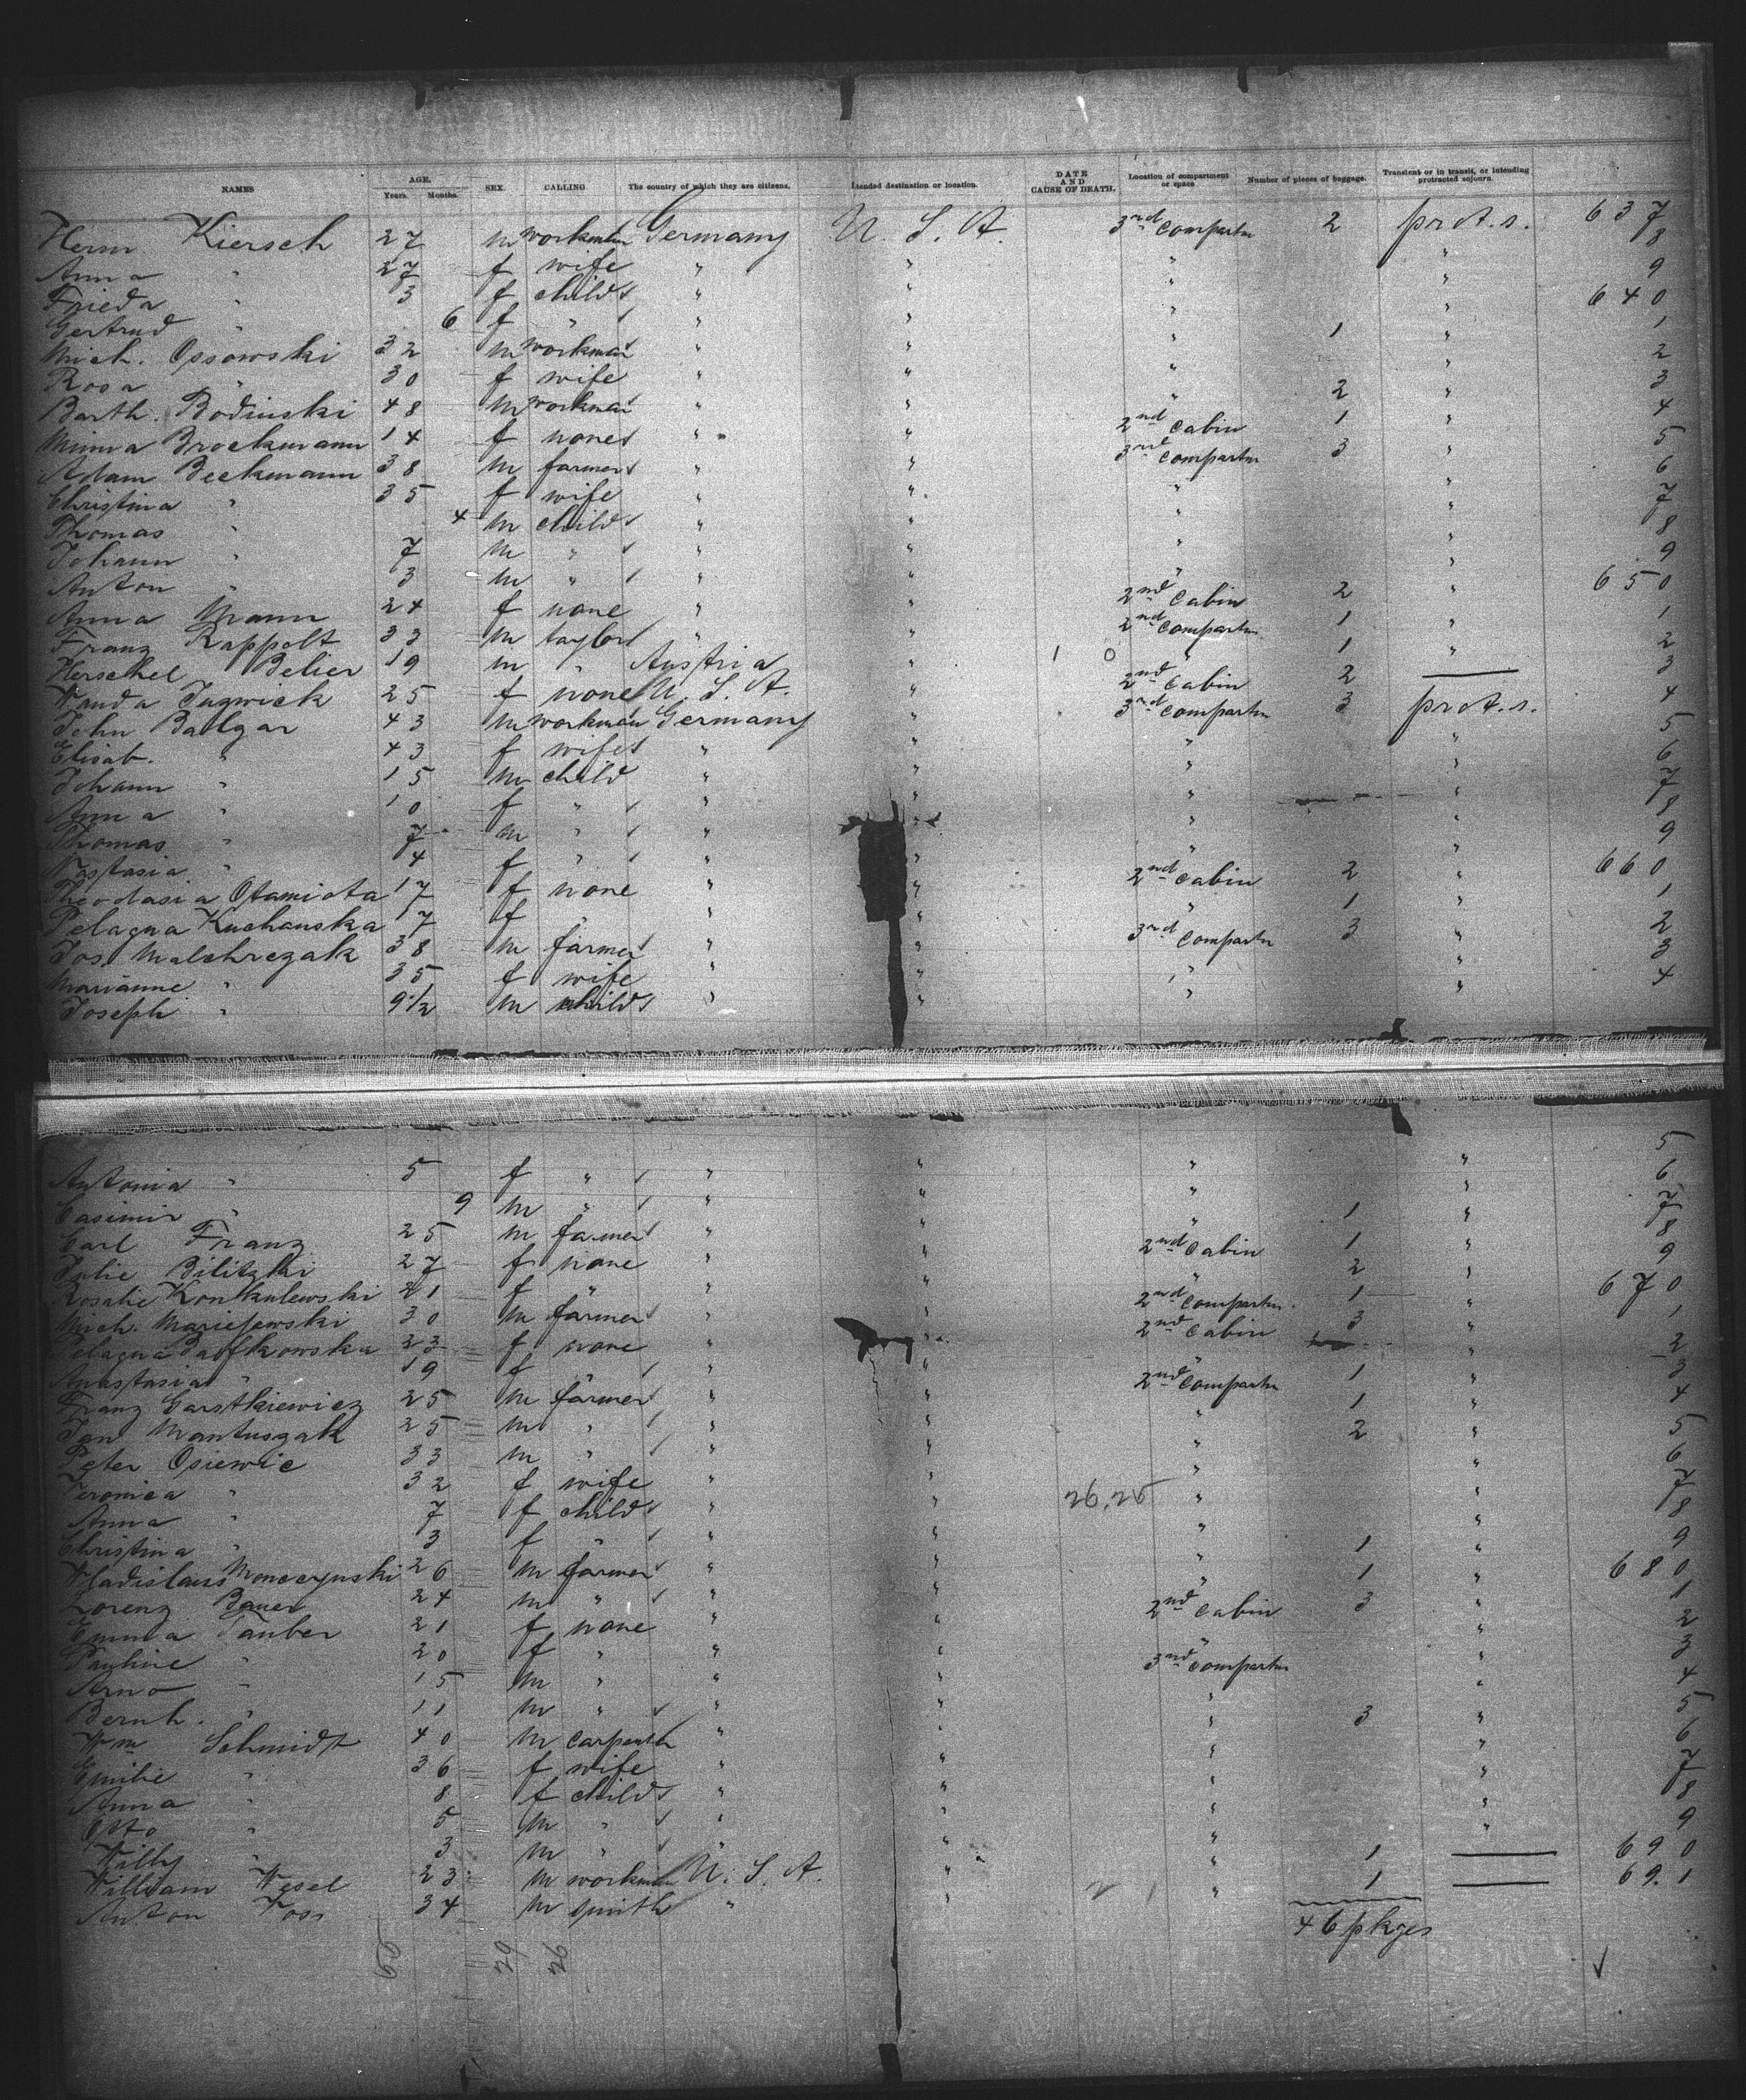 NAMES AGE. Years. Months. SEX. CALLING. The country of which they are citizens. Intended destination or location. DATE AND CAUSE OF DEATH. Location of compartment or space Number of pieces of baggage. Transient or in transit, or intending protracted sojourn.
Herm Kiersch 27 m workman Germany U. S. A. 3rd compartm 2 prot. s. 637
Anna " 27 f wife " " " " 8
Frieda " 3 f child " " " " 9
Gertrud " 6 f " " " " " 640
Mich. Ossowski 32 m workman " " " 1 " 1
Rosa " 30 f wife " " " " 2
Barth. Bodinski 48 m workman " " " 2 " 3
Minna Brockmann 14 f none " " 2nd Cabin 1 " 4
Adam Beckmann 38 m farmer " " 3rd compartm 3 " 5
Christina " 35 f wife " " " " 6
Thomas " 4 m child " " " " 7
Johann " 7 m " " " " " 8
Anton " 3 m " " " " " 9
Anna Mann 24 f none " " 2nd Cabin 2 " 650
Franz Rappolt 33 m taylor " " 2nd compartm 1 " 1
Herschel Belier 19 m " Austria " 1 0 " 1 " 2
Wanda Jugwick 25 f none U. S. A. " 2nd Cabin 2 — 3
John Balgar 43 m workman Germany " 3rd compartm 3 prot. s. 4
Elisab. " 43 f wife " " " " 5
Johann " 15 m child " " " " 6
Anna " 10 f " " " " " 7
Thomas " 7 m " " " " " 8
Nastasia " 4 f " " " " " 9
Theodasia Otamiota 17 f none " " 2nd Cabin 2 " 660
Pelagua Kuchanska 17 f " " " " 1 " 1
Jos. Malchrezak 38 m farmer " " 3rd compartm 3 " 2
Marianne " 35 f wife " " " " 3
Joseph " 9 1/2 m child " " " " 4
Antonia " 5 f " " " " " 5
Casimir " 9 m " " " " " 6
Carl Franz 25 m farmer " " " 1 " 7
Julie Bilitzki 27 f none " " 2nd Cabin 1 " 8
Rosalie Konkulewski 21 f " " " " 2 " 9
Mich. Mariejewski 30 m farmer " " 2nd compartm. 1 " 670
Pelagua Paofkowska 23 f none " " 2nd Cabin 3 " 1
Anastasia " 19 f " " " " " 2
Franz Garstkiewicz 25 m farmer " " 2nd compartm 1 " 3
Jan Mantuszak 25 m " " " " 1 " 4
Peter Osiewic 33 m " " " " 2 " 5
Veronica " 32 f wife " " " " 6
Anna " 7 f child " " 26,25 " " 7
Christina " 3 f " " " " " 8
Wladislaus Monczynski 26 m farmer " " " 1 " 9
Lorenz Bauer 24 m " " " " 1 " 680
Emma Tauber 21 f none " " 2nd Cabin 3 " 1
Pauline " 20 f " " " " " 2
Arno " 15 m " " " 3rd compartm " 3
Bernh. " 11 m " " " " " 4
Wm Schmidt 40 m carpenter " " " 3 " 5
Emilie " 36 f wife " " " " 6
Anna " 8 f child " " " " 7
Otto " 5 m " " " " " 8
Willy " 3 m " " " " " 9
William Wesel 23 m workman U. S. A. " " 1 — 690
Anton Voss 34 m smith " " " 1 — 691
46 pkges
29 26